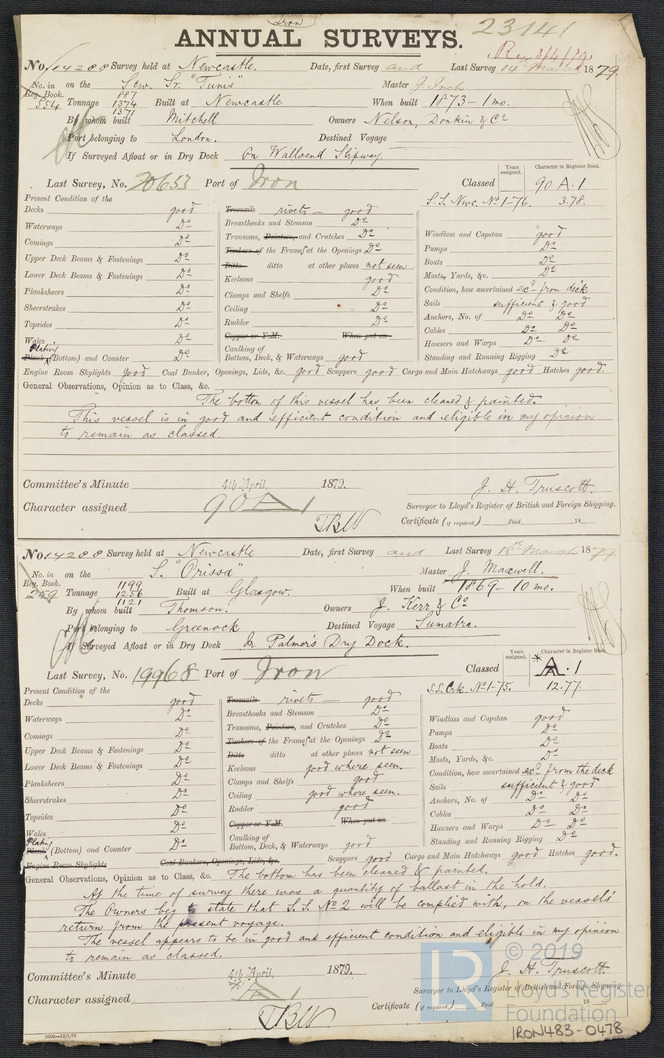 Iron 23141
ANNUAL SURVEYS. Rec 2/4/79
No. 14288 Survey held at Newcastle. Date, first Survey and Last Survey 14th March 1879
No. in on the Scw. Sr. "Tunis" Master J. Inch
Reg. Book. 887
554 Tonnage 1374 Built at Newcastle When built 1873 - 1 mo.
1371
By whom built Mitchell Owners Nelson, Donkin & Co
Port belonging to London. Destined Voyage
If Surveyed Afloat or in Dry Dock On Wallsend Slipway.
Last Survey, No. 20653 Port of Iron Classed Years assigned. Character in Register Book. 90 A.1
S.S. Nwc. No 1-76. 3.78.
Present Condition of the
Decks good Treenails rivets - good
Waterways Do Breasthooks and Stemson Do Windlass and Capstan good
Comings Do Transoms, Pointers, and Crutches Do Pumps Do
Upper Deck Beams & Fastenings Do Timbers of the Frames at the Openings Do Boats Do
Lower Deck Beams & Fastenings Do Ditto ditto at other places not seen Masts, Yards, &c. Do
Planksheers Do Keelsons good Condition, how ascertained exd from deck
Sheerstrakes Do Clamps and Shelfs Do Sails sufficient & good
Topsides Do Ceiling Do Anchors, No. of Do Do
Wales Rudder Do Cables Do Do
Plating Copper or Y.M. When put on Hawsers and Warps Do Do
Plank (Bottom) and Counter Do Caulking of Bottom, Deck, & Waterways good Standing and Running Rigging Do
Engine Room Skylights good Coal Bunker, Openings, Lids, &c. good Scuppers good Cargo and Main Hatchways good Hatches good.
General Observations, Opinion as to Class, &c.
The bottom of this vessel has been cleaned & painted.
This vessel is in good and efficient condition and eligible in my opinion
to remain as classed.
Committee's Minute 4th April, 1879. J. H. Truscott.
Character assigned 90 A 1 Surveyor to Lloyd's Register of British and Foreign Shipping.
Certificate (if required) Paid 18
No. 14288 Survey held at Newcastle Date, first Survey and Last Survey 18th March 1879
No. in on the S. "Orissa" Master J. Maxwell.
Reg. Book. 1199
259 Tonnage 1256 Built at Glasgow. When built 1869 - 10 mo.
1121
By whom built Thomson. Owners J. Kerr & Co
Port belonging to Greenock Destined Voyage Sumatra.
If Surveyed Afloat or in Dry Dock In Palmer's Dry Dock.
Last Survey, No. 19968 Port of Iron Classed Years assigned. Character in Register Book. * A.1
S.S. Crk. No 1-75. 12.77
Present Condition of the
Decks good Treenails rivets - good
Waterways Do Breasthooks and Stemson Do Windlass and Capstan good
Comings Do Transoms, Pointers, and Crutches Do Pumps Do
Upper Deck Beams & Fastenings Do Timbers of the Frames at the Openings Do Boats Do
Lower Deck Beams & Fastenings Do Ditto ditto at other places not seen Masts, Yards, &c. Do
Planksheers Do Keelsons good where seen. Condition, how ascertained exd from the deck
Sheerstrakes Do Clamps and Shelfs good Sails sufficient & good
Topsides Do Ceiling good where seen. Anchors, No. of Do Do
Wales Rudder good Cables Do Do
Plating Copper or Y.M. When put on Hawsers and Warps Do Do
Plank (Bottom) and Counter Do Caulking of Bottom, Deck, & Waterways good Standing and Running Rigging Do
Engine Room Skylights Coal Bunkers, Openings, Lids, &c. Scuppers good Cargo and Main Hatchways good Hatches good.
General Observations, Opinion as to Class, &c. The bottom has been cleaned & painted.
At the time of survey there was a quantity of ballast in the hold.
The Owners beg to state that S.S. No 2 will be complied with, on the vessels
return from the present voyage.
The vessel appears to be in good and efficient condition and eligible in my opinion
to remain as classed.
Committee's Minute 4th April, 1879. J. H. Truscott
Character assigned * A 1 Surveyor to Lloyd's Register of British and Foreign Shipping.
Certificate (if required) Paid 18
© 2019
LR Lloyd's Register
Foundation
IRON483-0478